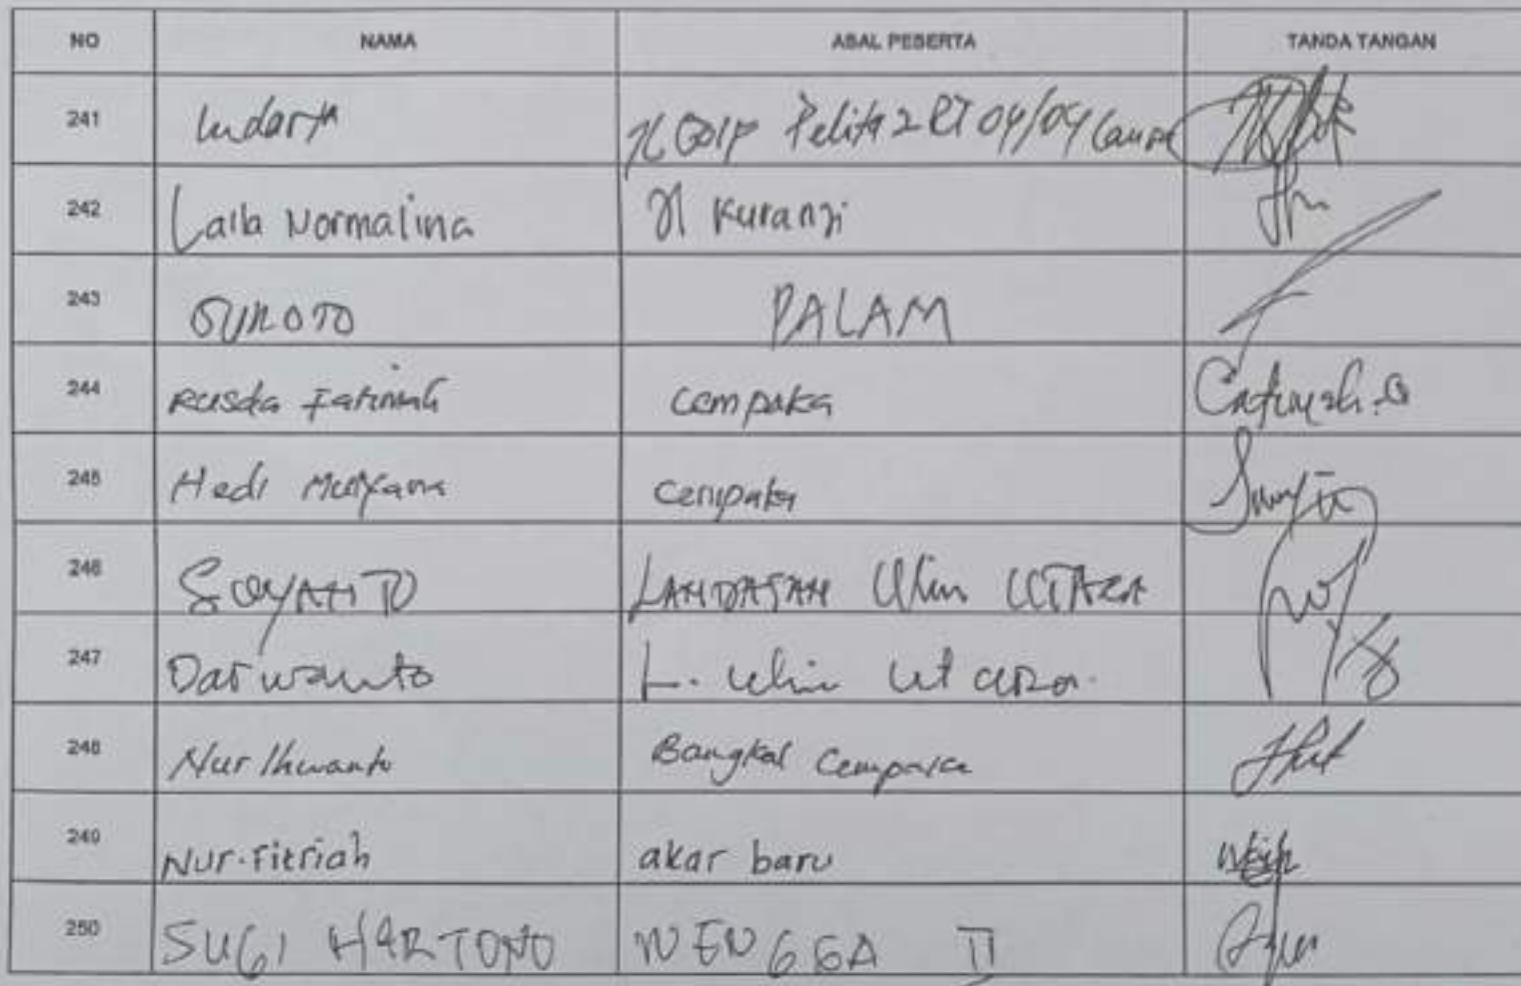 NO NAMA ASAL PESERTA TANDA TANGAN
241 Pelita 2 RT 04/04
242 Laila Normalina Jl Kuranji
243 PALAM
244 Rusda Fatimah Cempaka
245 Hedi Cempaka
246 SUYANTO LANDASAN Ulin UTARA
247 Darwanto L. Ulin Utara.
248 Nur Ihwanto Bangkal Cempaka
249 Nur. Fitriah akar baru
250 SUGI HARTONO WENGGA II